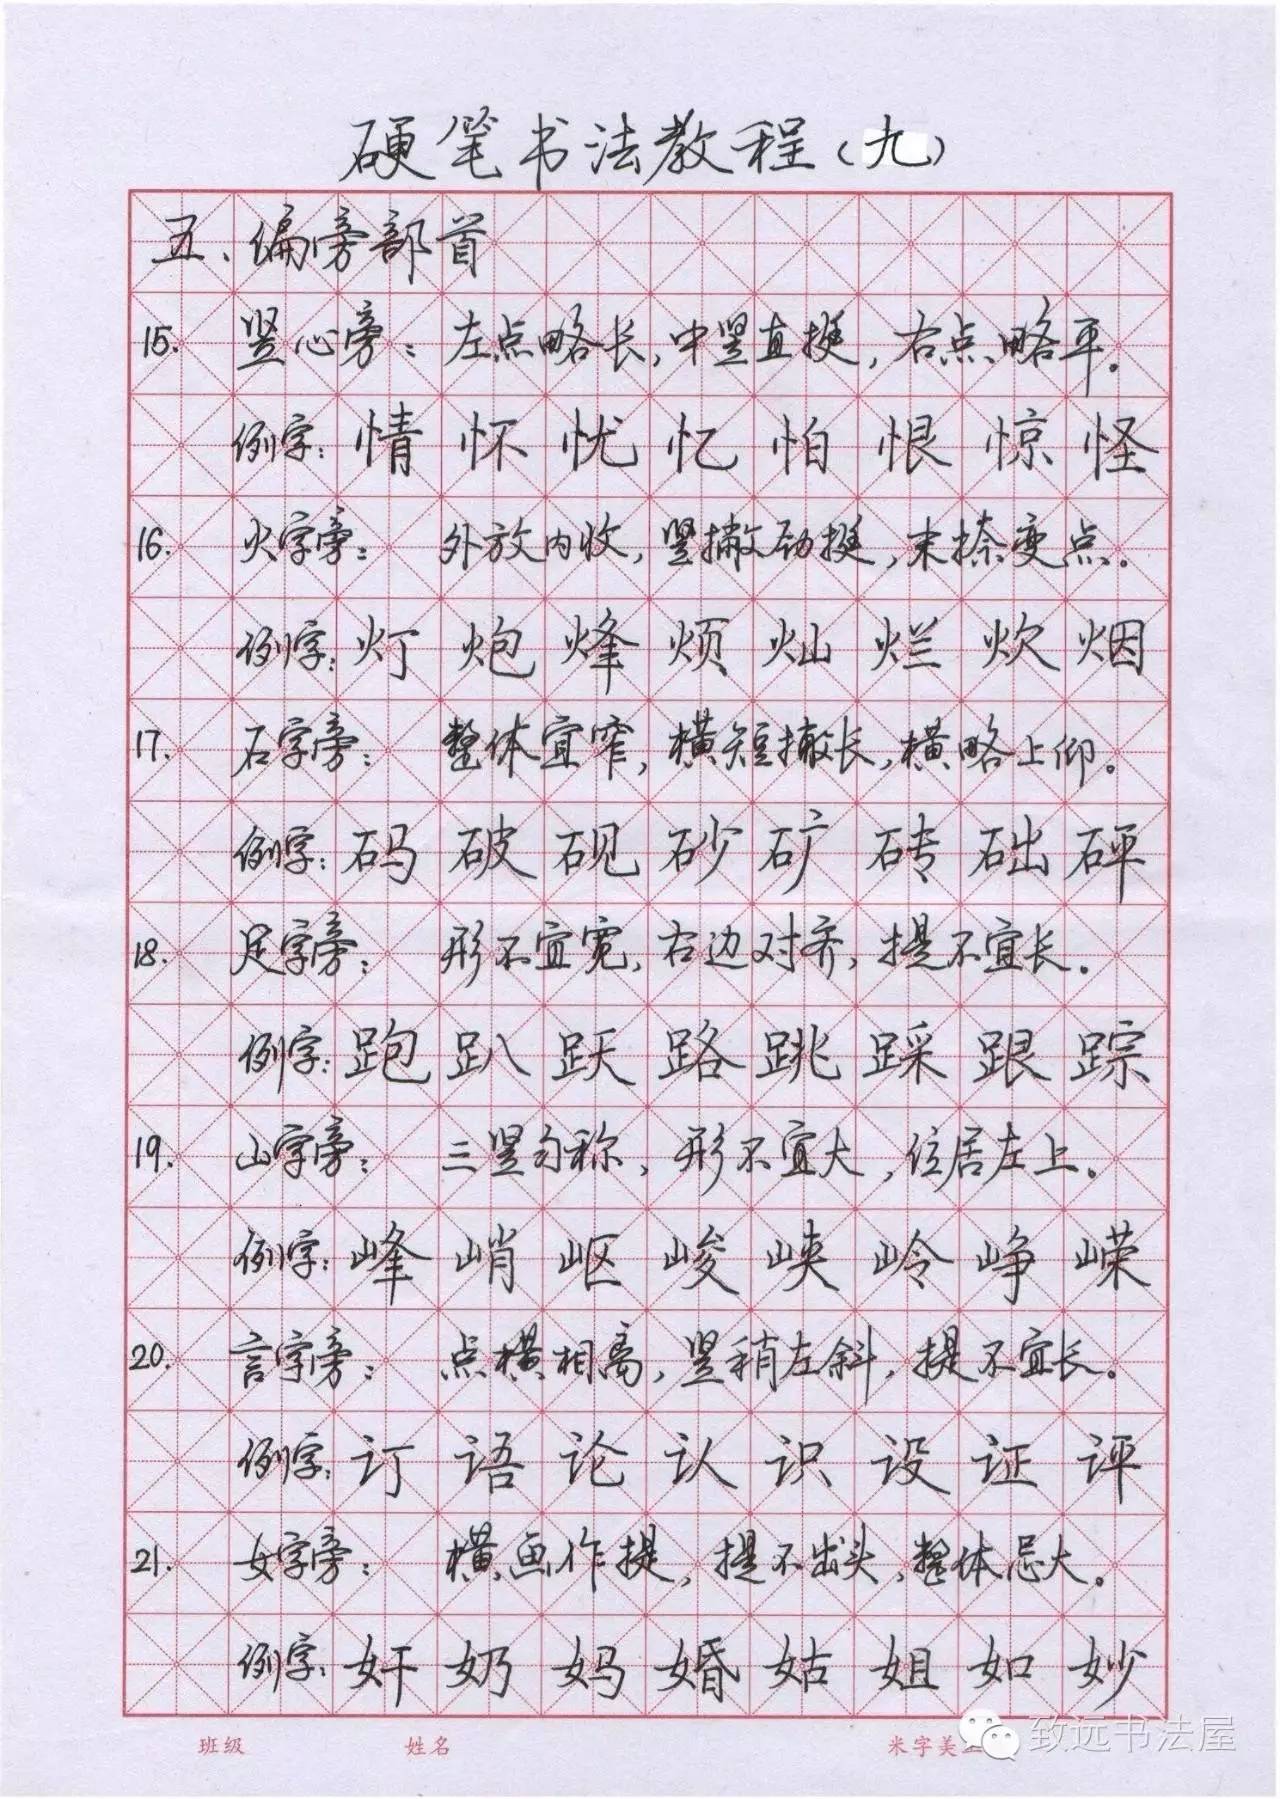 硬笔书法教程(九)
五、偏旁部首
15. 竖心旁:左点略长,中竖直挺,右点略平。
例字:情 怀 忧 忆 怕 恨 惊 怪
16. 火字旁:外放内收,竖撇劲挺,末捺变点。
例字:灯 炮 烽 烦 灿 烂 炊 烟
17. 石字旁:整体宜窄,横短撇长,横略上仰。
例字:码 破 砚 砂 矿 砖 础 砰
18. 足字旁:形不宜宽,右边对齐,提不宜长。
例字:跑 趴 跃 路 跳 踩 跟 踪
19. 山字旁:三竖匀称,形不宜大,位居左上。
例字:峰 峭 岖 峻 峡 岭 峥 嵘
20. 言字旁:点横相离,竖稍左斜,提不宜长。
例字:订 语 论 认 识 设 证 评
21. 女字旁:横画作提,提不出头,整体忌大。
例字:奸 奶 妈 婚 姑 姐 如 妙
班级 姓名 米字美
致远书法屋